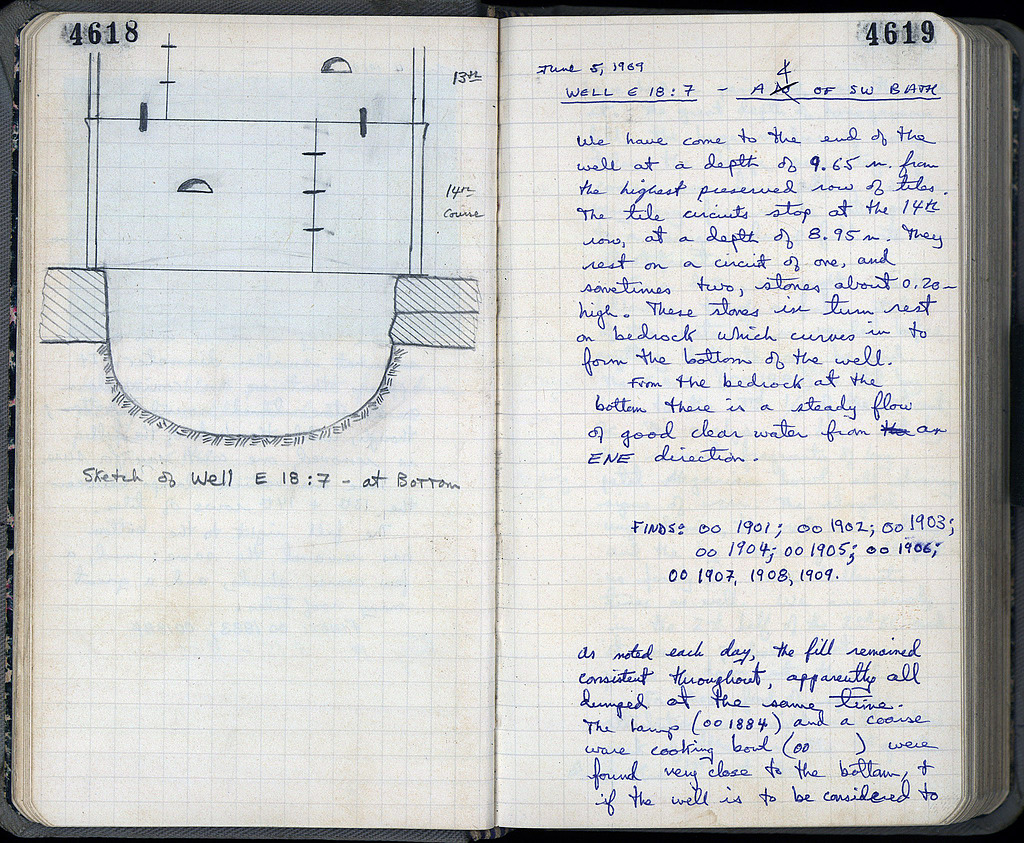 4618
13th
14th
Course
Sketch of Well E 18:7 - at Bottom
4619
June 5, 1969
4
WELL E 18:7 - A OF SW BATH
We have come to the end of the
well at a depth of 9.65 m. from
the highest preserved row of tiles.
The tile circuits stop at the 14th
row, at a depth of 8.95 m. They
rest on a circuit of one, and
sometimes two, stones about 0.20-
high. These stones in turn rest
on bedrock which curves in to
form the bottom of the well.
From the bedrock at the
bottom there is a steady flow
of good clear water from the an
ENE direction.
FINDS: 00 1901; 00 1902; 00 1903;
00 1904; 00 1905; 00 1906;
00 1907, 1908, 1909.
As noted each day, the fill remained
consistent throughout, apparently all
dumped at the same time.
The lamp (00 1884) and a coarse
ware cooking bowl (00 ) were
found very close to the bottom, &
if the well is to be considered to